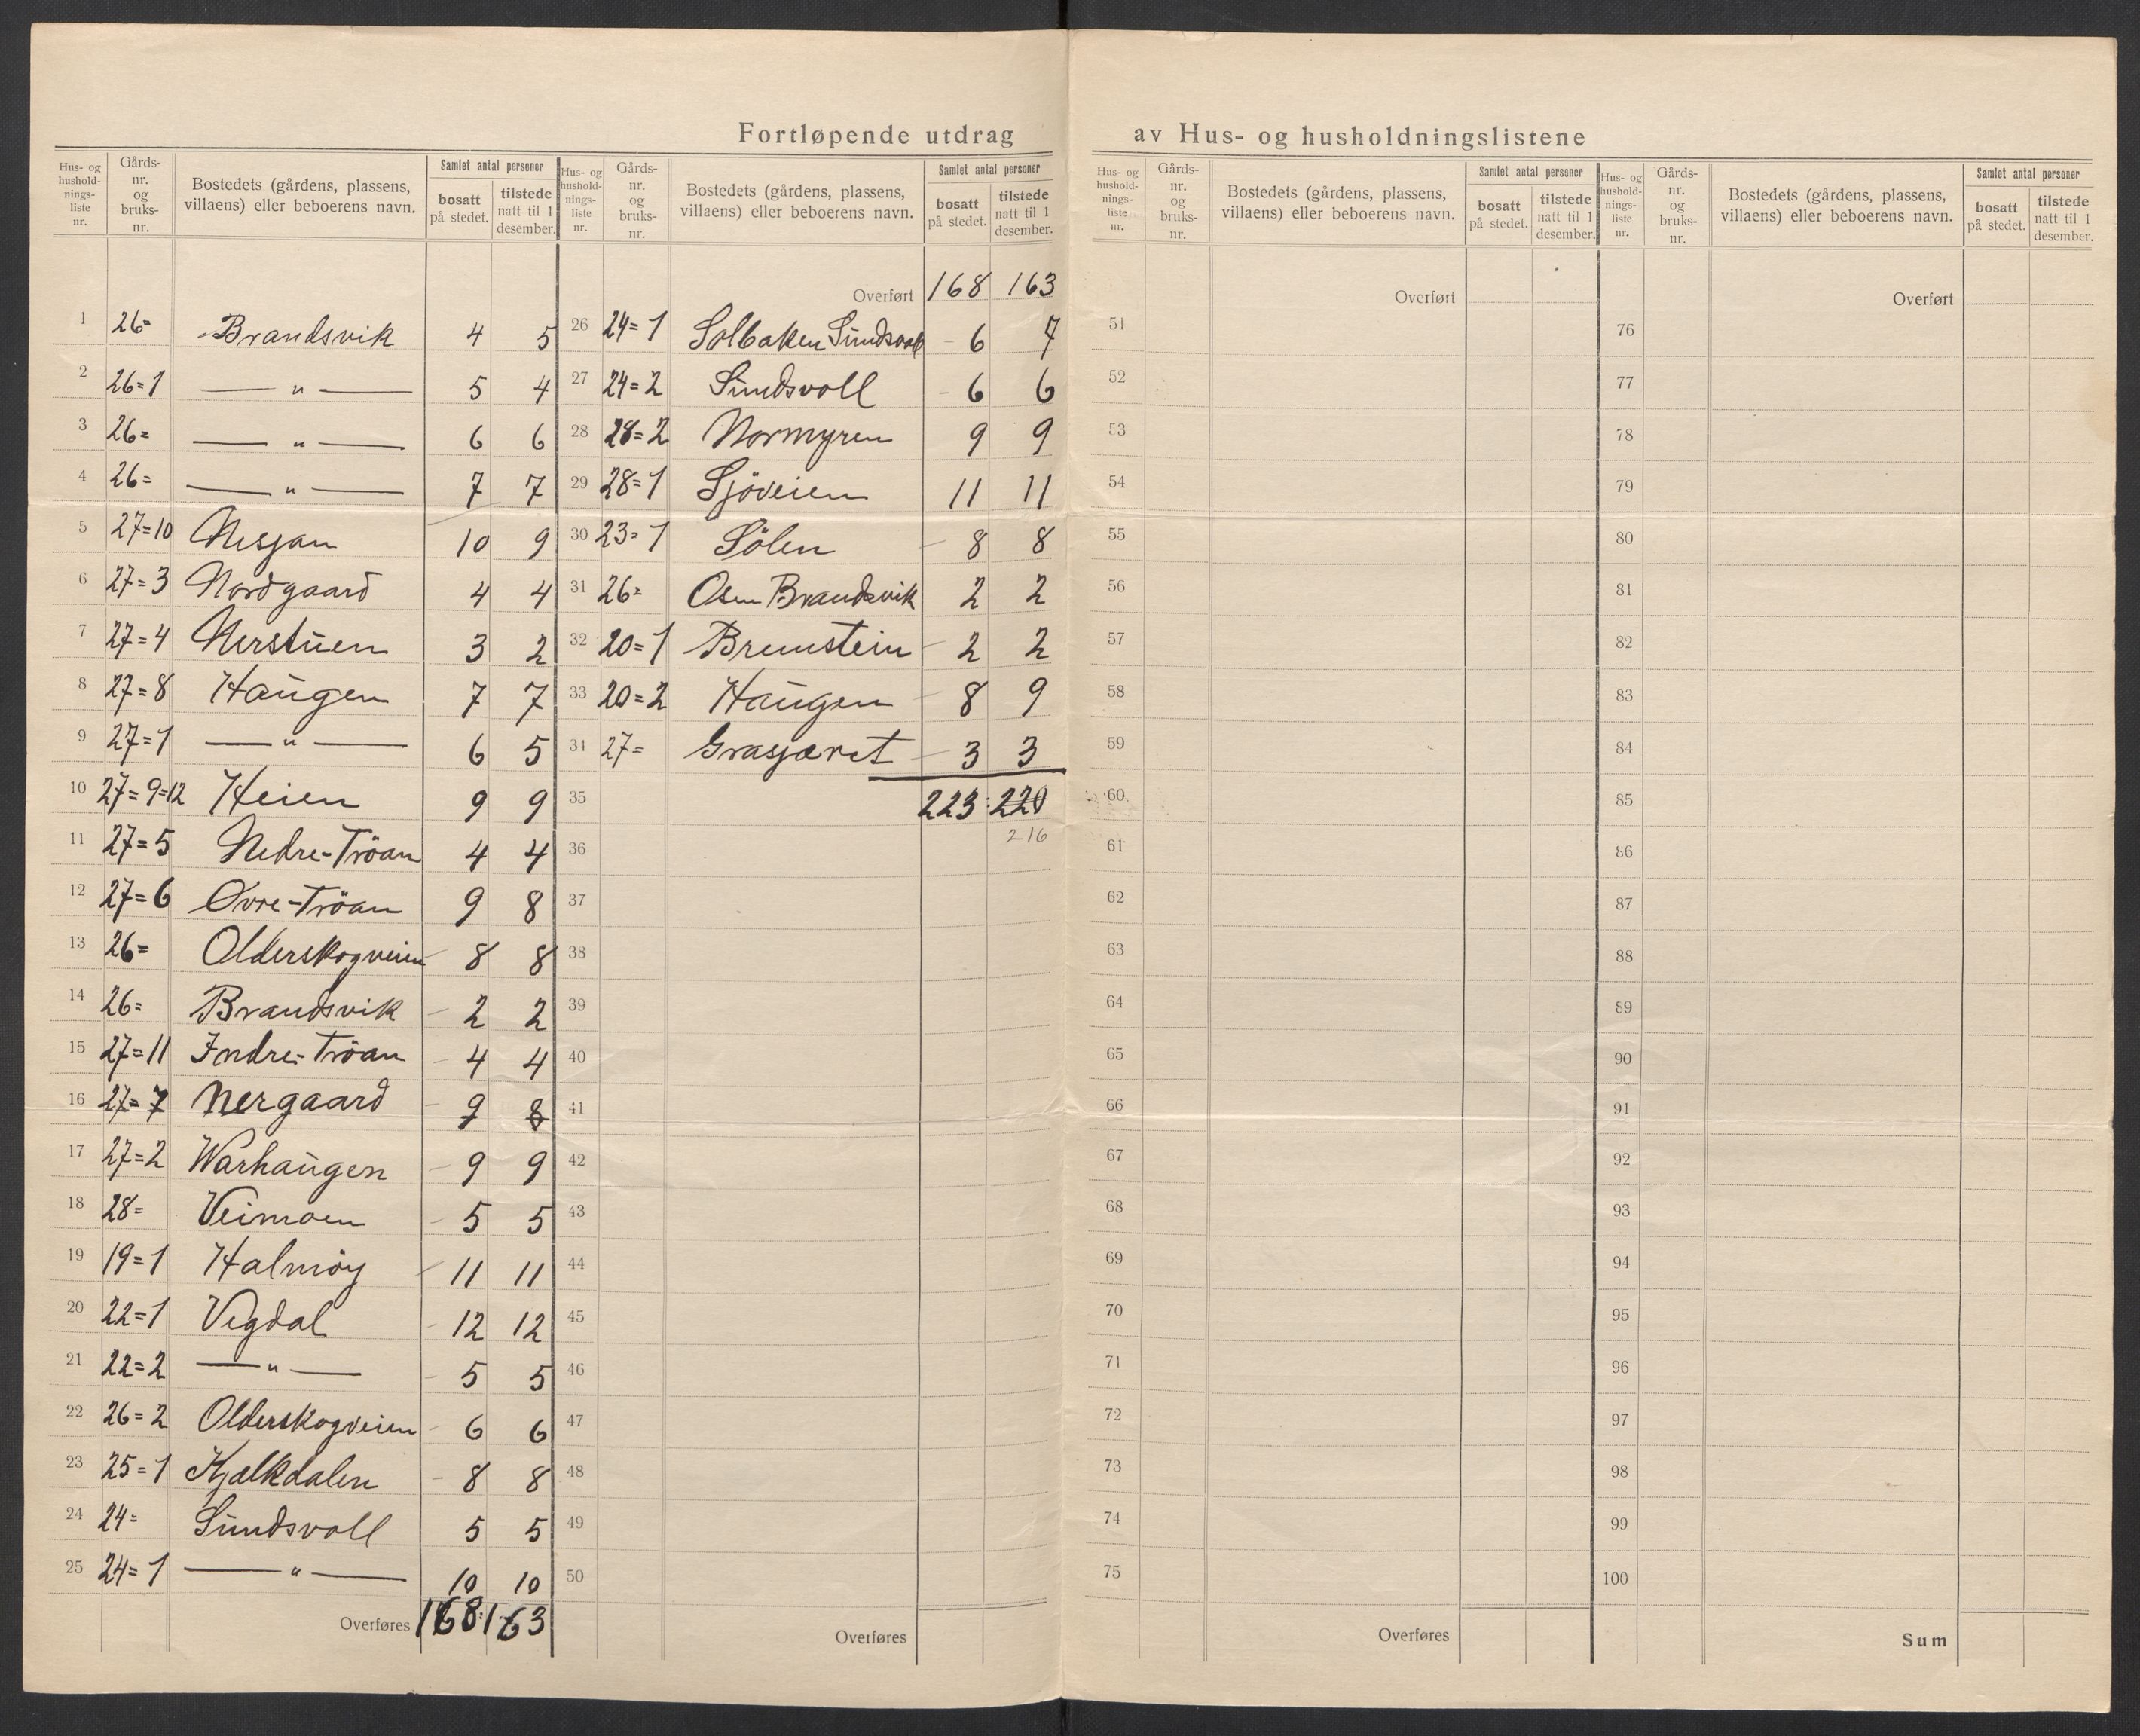 Fortløpende utdrag av Hus- og husholdningslistene
Hus- og hushold-nings-liste nr. Gårds-nr. og bruks-nr. Bostedets (gårdens, plassens, villaens) eller beboerens navn. Samlet antal personer bosatt på stedet. tilstede natt til 1 desember.
1 26= Brandsvik 4 5
2 26=1 — " — 5 4
3 26= — " — 6 6
4 26= — " — 7 7
5 27=10 Nesjan 10 9
6 27=3 Nordgaard 4 4
7 27=4 Nerstuen 3 2
8 27=8 Haugen 7 7
9 27=1 — " — 6 5
10 27=9=12 Heien 9 9
11 27=5 Nedre-Tröan 4 4
12 27=6 Övre-Tröan 9 8
13 26= Olderskogveien 8 8
14 26= Brandsvik 2 2
15 27=11 Indre-Tröan 4 4
16 27=7 Nergaard 9 8
17 27=2 Warhaugen 9 9
18 28= Veimoen 5 5
19 19=1 Halmöy 11 11
20 22=1 Vegdal 12 12
21 22=2 — " — 5 5
22 26=2 Olderskogveien 6 6
23 25=1 Kjælkdalen 8 8
24 24= Sundsvoll 5 5
25 24=1 — " — 10 10
Overføres 168 163
Hus- og hushold-nings-liste nr. Gårds-nr. og bruks-nr. Bostedets (gårdens, plassens, villaens) eller beboerens navn. Samlet antal personer bosatt på stedet. tilstede natt til 1 desember.
Overført 168 163
26 24=1 Solbaken Sundsvoll 6 7
27 24=2 Sundsvoll 6 6
28 28=2 Normyren 9 9
29 28=1 Sjöveien 11 11
30 23=1 Sölen 8 8
31 26= Osen Brandsvik 2 2
32 20=1 Bremstein 2 2
33 20=2 Haugen 8 9
34 27= Grasjæret 3 3
35 223 220
36 216
37
38
39
40
41
42
43
44
45
46
47
48
49
50
Overføres
Hus- og hushold-nings-liste nr. Gårds-nr. og bruks-nr. Bostedets (gårdens, plassens, villaens) eller beboerens navn. Samlet antal personer bosatt på stedet. tilstede natt til 1 desember.
Overført
51
52
53
54
55
56
57
58
59
60
61
62
63
64
65
66
67
68
69
70
71
72
73
74
75
Overføres
Hus- og hushold-nings-liste nr. Gårds-nr. og bruks-nr. Bostedets (gårdens, plassens, villaens) eller beboerens navn. Samlet antal personer bosatt på stedet. tilstede natt til 1 desember.
Overført
76
77
78
79
80
81
82
83
84
85
86
87
88
89
90
91
92
93
94
95
96
97
98
99
100
Sum